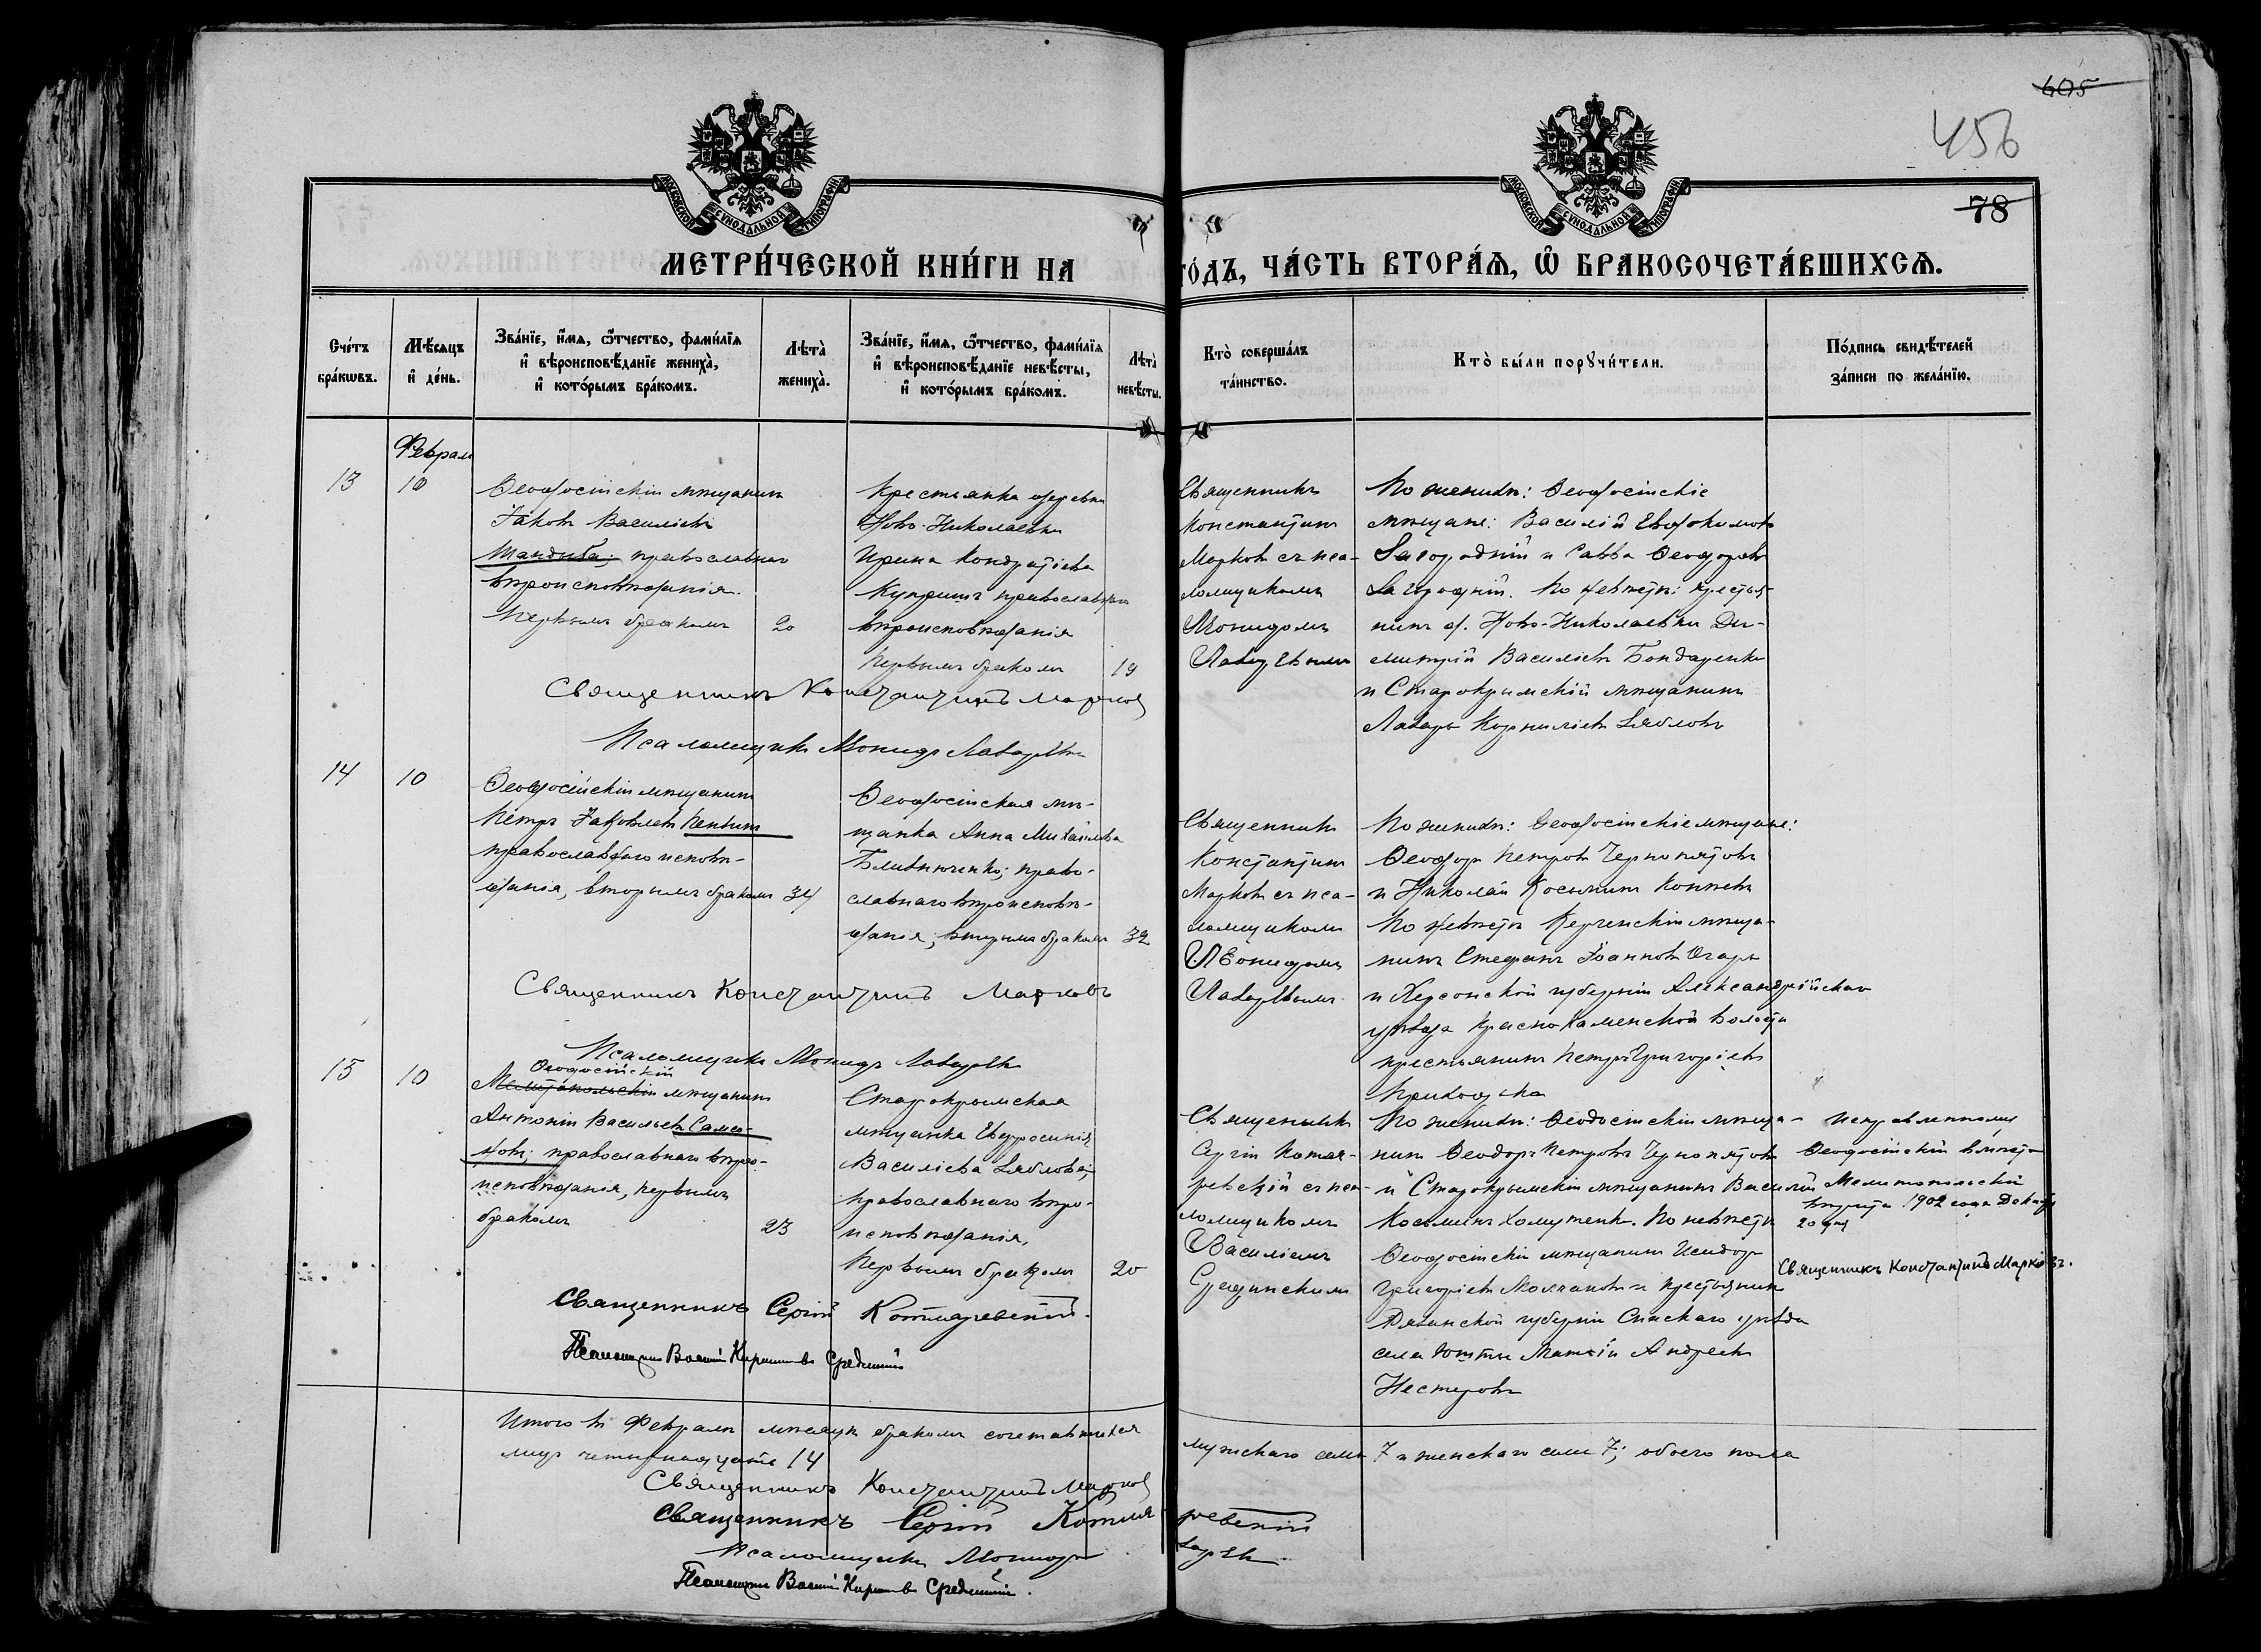 605
456
78
МЕТРИ́ЧЕСКОЙ КНИ́ГИ НА ГО́ДЪ, ЧА́СТЬ ВТОРА́Я, Ѡ БРАКОСОЧЕТА́ВШИХСЯ.
МОСКОВСКОЙ СѴНОДАЛЬНОЙ ТИПОГРАФІИ
МОСКОВСКОЙ СѴНОДАЛЬНОЙ ТИПОГРАФІИ
Сче́тъ бра́кѡвъ.
Мѣ́сяцъ и҆ де́нь.
Зва́нїе, и҆́мѧ, ѻ҆́тчество, фами́лїѧ и҆ вѣроисповѣ́данїе жениха̀, и҆ кото́рымъ бра́комъ.
Лѣта̀ жениха̀.
Зва́нїе, и҆́мѧ, ѻ҆́тчество, фами́лїѧ и҆ вѣроисповѣ́данїе невѣ́сты, и҆ кото́рымъ бра́комъ.
Лѣта̀ невѣ́сты.
Кто̀ соверша́лъ та́инство.
Кто̀ бы́ли порꙋчи́тели.
По́дпись свидѣ́телей за́писи по жела́нїю.
Феврал
13
10
Ѳеодосійскій мѣщанинъ
Іаковъ Василіевъ
Шандиба; православнаго
вѣроисповѣданія.
Первымъ бракомъ
20
Крестьянка деревни
Ново-Николаевки
Ирина Кондратіева
Купришъ православнаго
вѣроисповѣданія
Первымъ бракомъ
19
Священникъ
Константинъ
Марковъ съ пса-
ломщикомъ
Леонидомъ
Лавровымъ
По женихѣ: Ѳеодосійскіе
мѣщане: Василій Евдокимовъ
Загородній и Савва Ѳеодоровъ
Загородній. По невѣстѣ: крестья-
нинъ д. Ново-Николаевки Ди-
митрій Василіевъ Бондаренко
и Старокрымскій мѣщанинъ
Лазарь Корниліевъ Зябловъ
Священникъ Константинъ Марковъ
Псаломщикъ Леонидъ
14
10
Ѳеодосійскій мѣщанинъ
Петръ Іаковлевъ
православнаго исповѣ-
данія, вторымъ бракомъ
34
Ѳеодосійская мѣ-
щанка Анна Михайлова
Бливнюченко; право-
славнаго вѣроисповѣ-
данія; вторымъ бракомъ
32
Священникъ
Константинъ
Марковъ съ пса-
ломщикомъ
Леонидомъ
По женихѣ: Ѳеодосійскіе мѣщане:
Ѳеодоръ Петровъ Чернопятовъ
и Николай Косьминъ
По невѣстѣ Керченскій мѣща-
нинъ Стефанъ Іоанновъ Огарь
и Херсонской губерніи Александрійскаго
уѣзда Красно Каменской волости
крестьянинъ Петръ Григоріевъ
Приходько
Священникъ Константинъ Марковъ
Псаломщикъ Леонидъ
15
10
Ѳеодосійскій
Мелитопольскій мѣщанинъ
Антоній Васильевъ Само-
православнаго вѣро-
исповѣданія, первымъ
бракомъ
23
Старокрымская
мѣщанка Евфросинія
Василіева Зяблова;
православнаго вѣро-
исповѣданія,
Первымъ бракомъ
20
Священникъ
Сергій Котля-
ревскій съ пса-
ломщикомъ
Василіемъ
Срединскимъ
По женихѣ: Ѳеодосійскій мѣща-
нинъ Ѳеодоръ Петровъ Чернопятовъ
и Старокрымскій мѣщанинъ Василій
Косьминъ Хомутенко. По невѣстѣ
Ѳеодосійскій мѣщанинъ Исидоръ
Григоріевъ Молчановъ и крестьянинъ
Рязанской губерніи Спаскаго уѣзда
села Матвій Андреевъ
Нестеровъ
Исправленному
Ѳеодосійскій вмѣсто
Мелитопольскій
вѣрить 1902 года Декабр
20 дня
Священникъ Константинъ Марковъ.
Священникъ Сергій Котляревскій.
Псаломщикъ Василій Срединскій
Итого въ Февралѣ мѣсяцѣ бракомъ сочетавшихся мужскаго семь 7 и женскаго семь 7; обоего пола
лицъ четырнадцать 14
Священникъ Константинъ Марковъ
Священникъ Сергій Котляревскій
Псаломщикъ Леонидъ
Псаломщикъ Василій Срединскій.